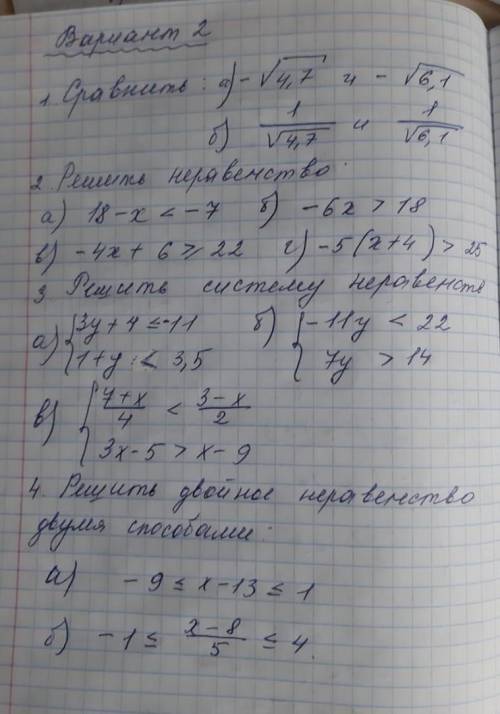 Вариант 2
1 Сравнить: а) -√4,7 и -√6,1
б) 1/√4,7 и 1/√6,1
2. Решить неравенство:
а) 18-x < -7 б) -6x > 18
в) -4x + 6 ≥ 22 г) -5(x+4) > 25
3 Решить систему неравенств
а) { 3y + 4 ≤ -11 б) { -11y < 22
1+y < 3,5 7y > 14
в) { 7+x/4 < 3-x/2
3x-5 > x-9
4. Решить двойное неравенство
двумя способами:
а) -9 ≤ x-13 ≤ 1
б) -1 ≤ x-8/5 ≤ 4.